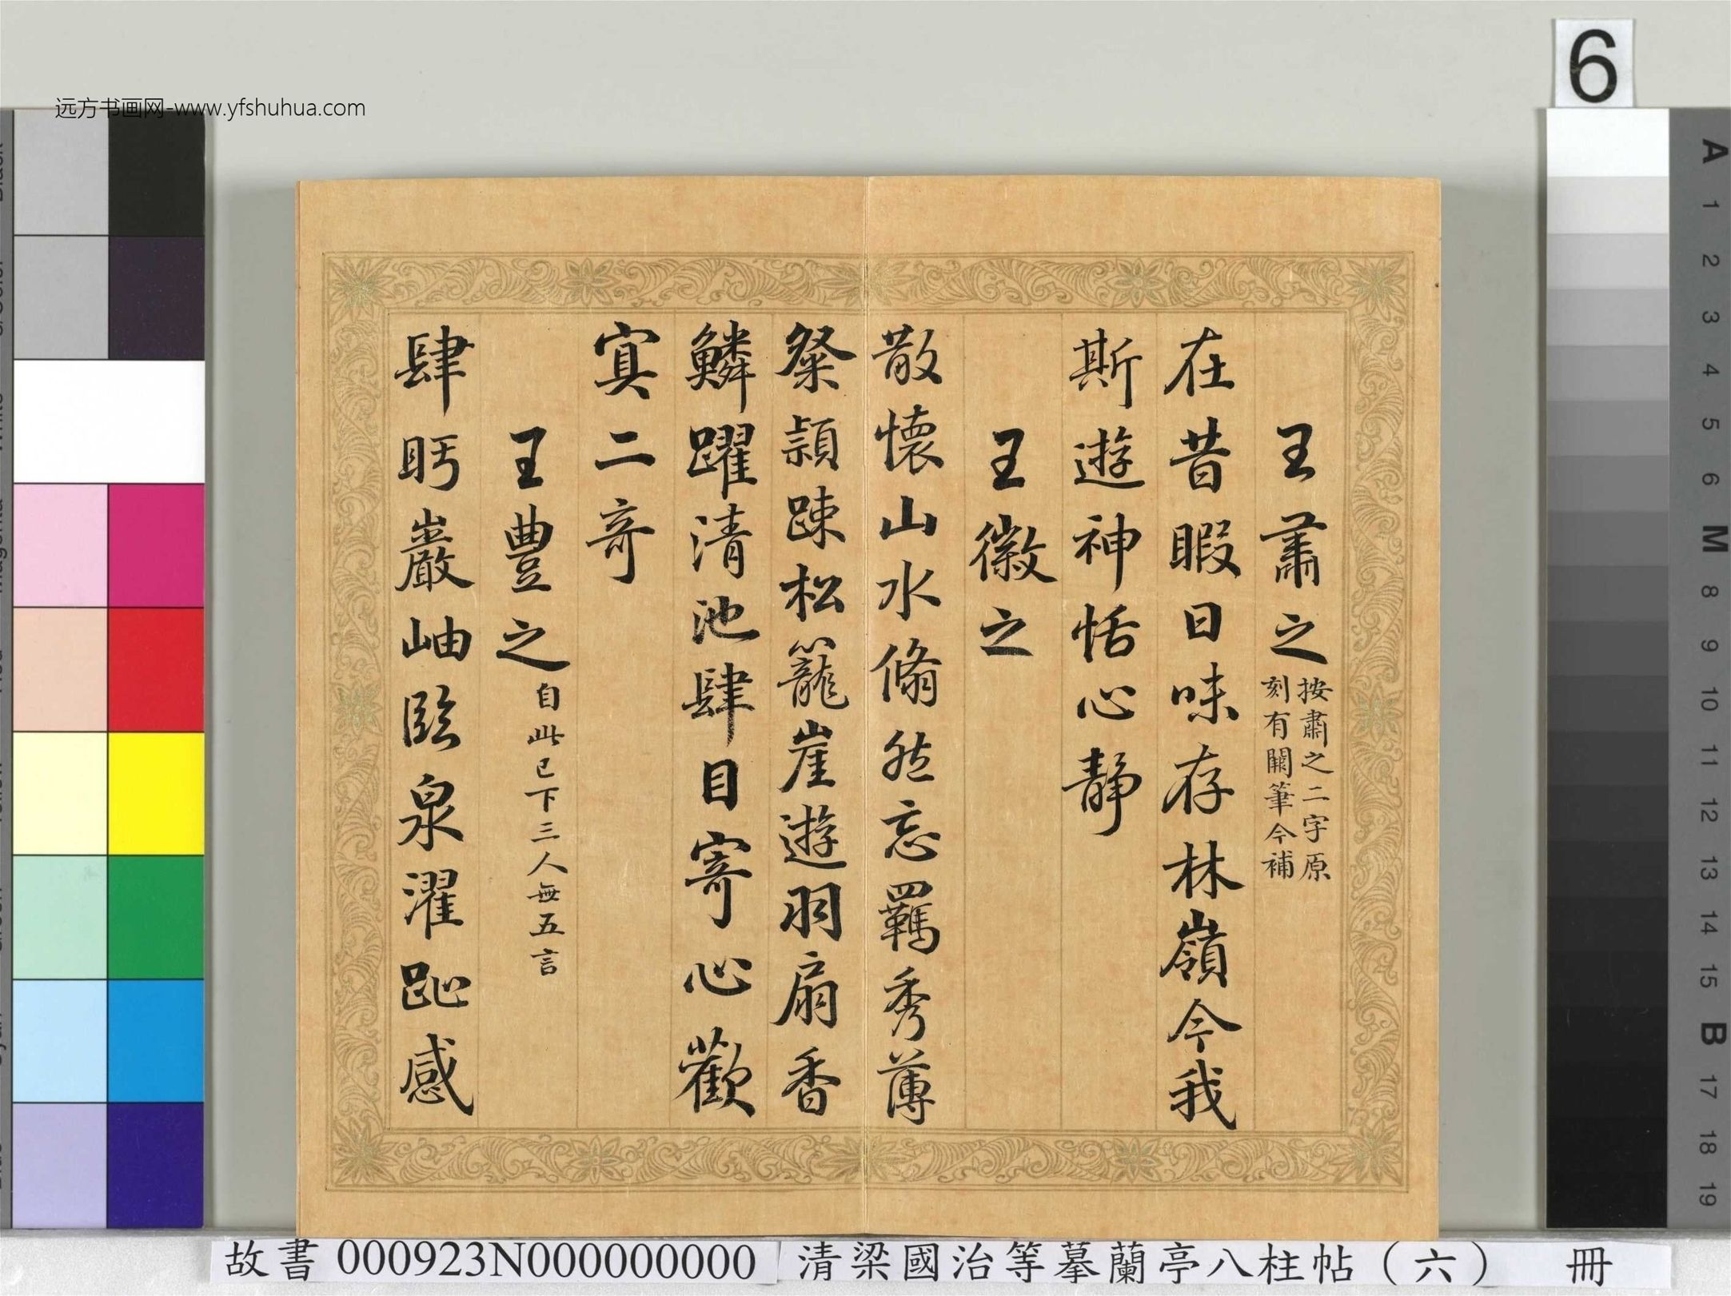 远方书画网-www.yfshuhua.com
6
王肅之 按肅之二字原
刻有闕筆今補
在昔暇日味存林嶺今我
斯遊神恬心靜
王徽之
散懷山水翛然忘羈秀薄
粲穎疎松籠崖遊羽扇香
鱗躍清池肆目寄心歡
寘二奇
王豊之 自此已下三人無五言
肆眄巖岫臨泉濯趾感
A
1
2
3
4
5
6
M
8
9
10
11
12
13
14
15
B
17
18
19
故書 000923N000000000 清梁國治等摹蘭亭八柱帖（六） 冊